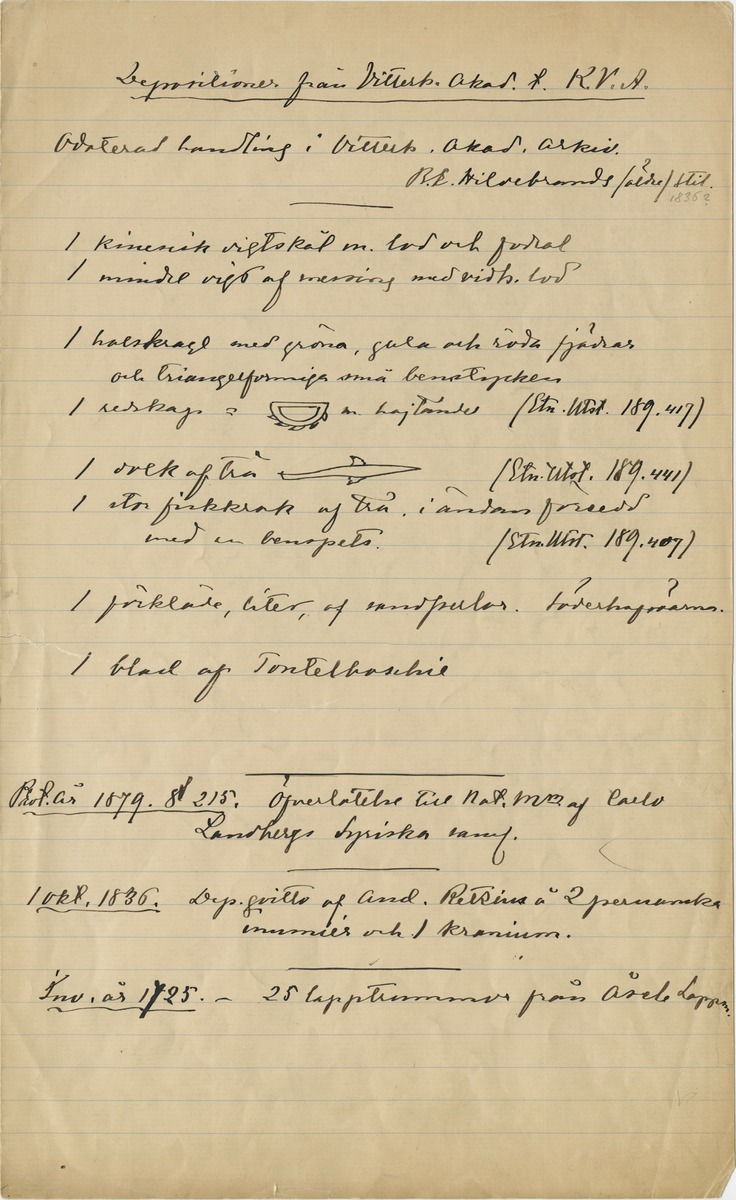 Depositioner från Vitterh. Akad. t. K.V.A.
Odaterad handling i Vitterh. Akad. arkiv.
B.E. Hildebrands (äldre?) stil.
1836?
1 kinesisk vigtskål m. lod och fodral
1 mindre vigt af messing med vidh. lod
1 halskrage med gröna, gula och röda fjädrar
och triangelformiga små benstycken
1 redskap = m. hajtänder (Etn. Utst. 189.417)
1 dolk af trä (Etn. Utst. 189.441)
1 stor fiskkrok af trä, i ändan försedd
med en benspets. (Etn. Utst. 189.407)
1 förkläde, litet, af sandperlor. ?Söderhafsöarna.?
1 blad af
Prot. år 1879. § 215. Öfverlåtelse till Nat. Mus af Carlo
Landbergs Syriska saml.
1 okt. 1836. Dep. qvitto af And. Retzius å 2 peruanska
mumier och 1 kranium.
Inv. år 1725. – 25 lapptrummor från Åsele Lappm.